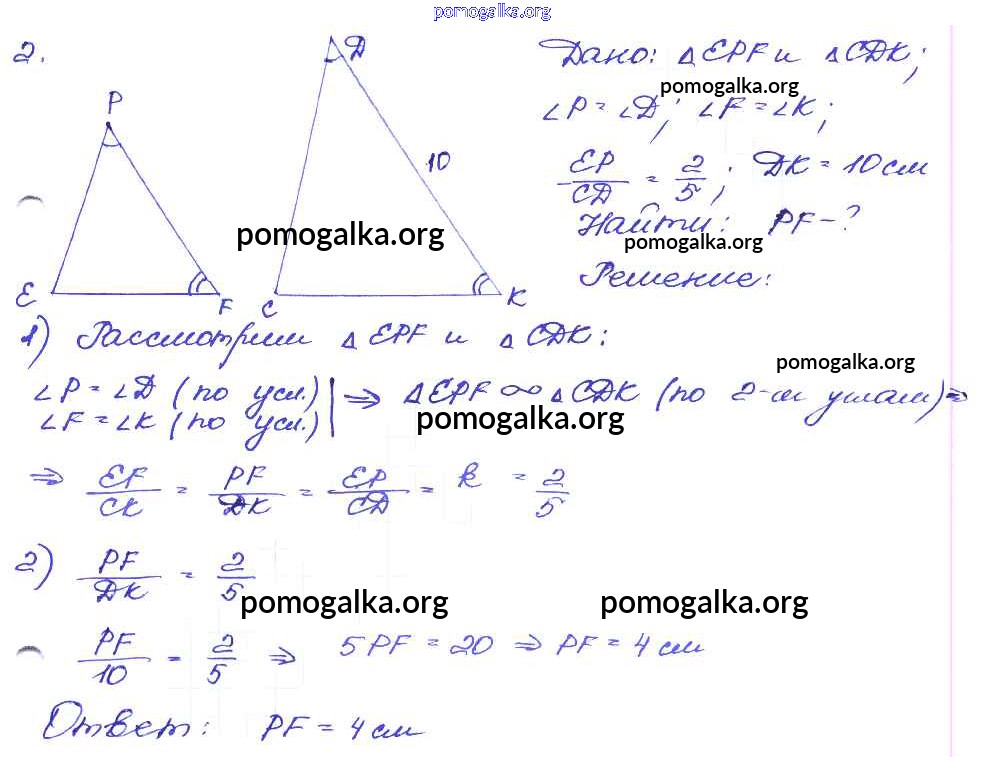 pomogalka.org
2.
P
E
F
D
10
C
K
Дано: △EPF и △CDK;
pomogalka.org
∠P = ∠D; ∠F = ∠K;
EP/CD = 2/5; DK = 10 см
Найти: PF - ?
pomogalka.org
pomogalka.org
Решение:
1) Рассмотрим △EPF и △CDK:
pomogalka.org
∠P = ∠D (по усл.) | ⇒ △EPF ∞ △CDK (по 2-м углам) ⇒
∠F = ∠K (по усл.)
pomogalka.org
⇒ EF/CK = PF/DK = EP/CD = k = 2/5
2) PF/DK = 2/5
pomogalka.org
pomogalka.org
PF/10 = 2/5 ⇒ 5PF = 20 ⇒ PF = 4 см
Ответ: PF = 4 см